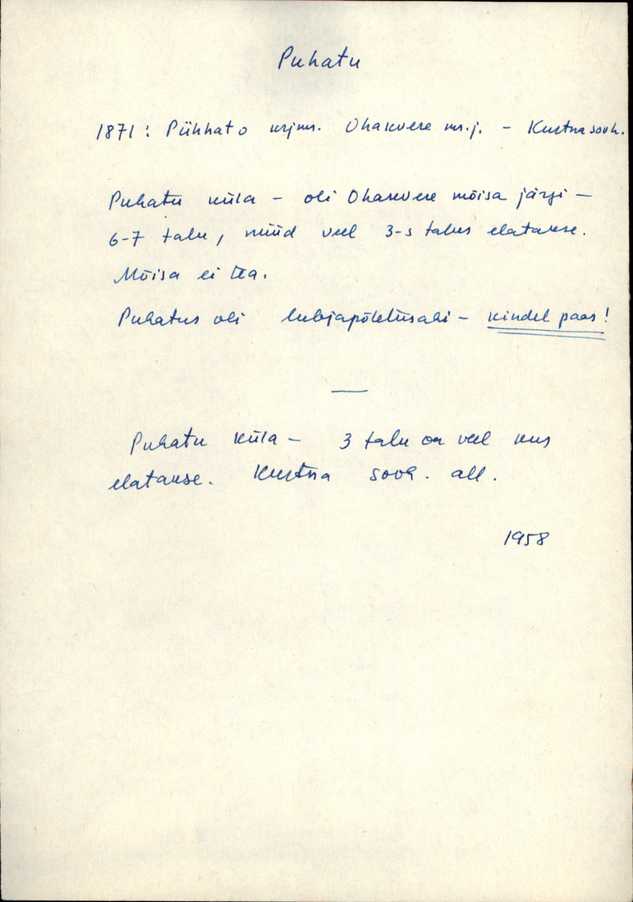 Puhatu
1871: Pühhato krjms. Ohakvere ms.j. - Kurtna sovh.
Puhatu küla - oli Ohakvere mõisa järgi -
6-7 talu, nüüd veel 3-s talus elatakse.
Mõisa ei tea.
Puhatus oli lubjapõletusahi - kindel paas!
Puhatu küla - 3 talu on veel kus
elatakse. Kurtna sovh. all.
1958